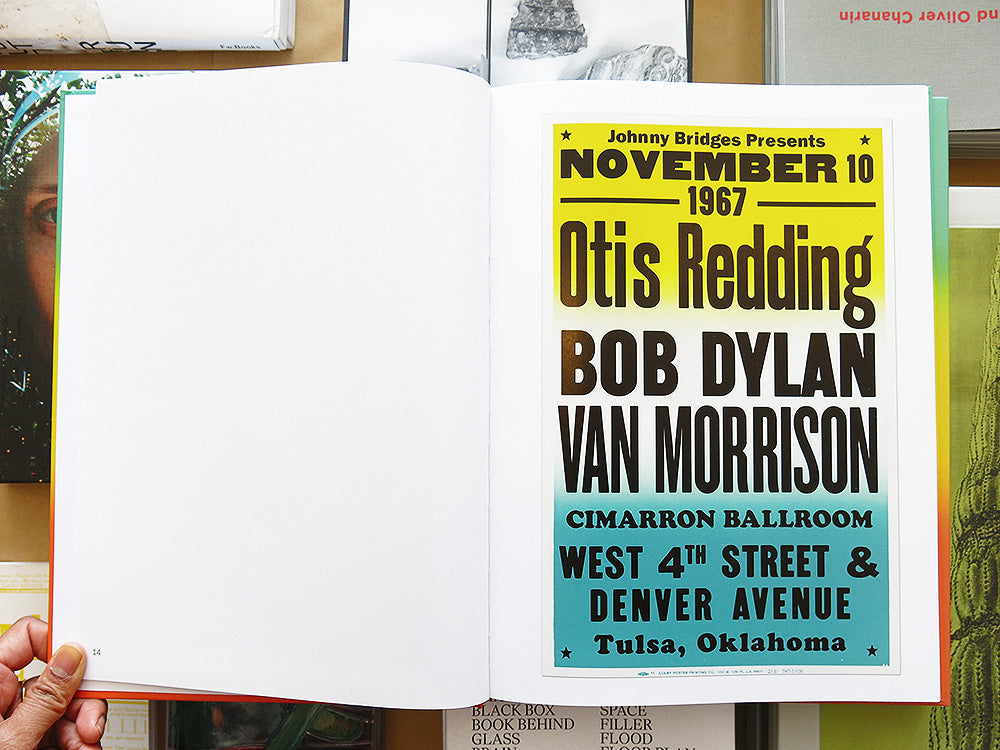 Ew.Books
nd Oliver Chanarin
Johnny Bridges Presents
NOVEMBER 10
1967
Otis Redding
BOB DYLAN
VAN MORRISON
CIMARRON BALLROOM
WEST 4TH STREET &
DENVER AVENUE
Tulsa, Oklahoma
14
BLACK BOX
BOOK BEHIND
GLASS
BRAIN
SPACE
FILLER
FLOOD
FLOOR PLAN